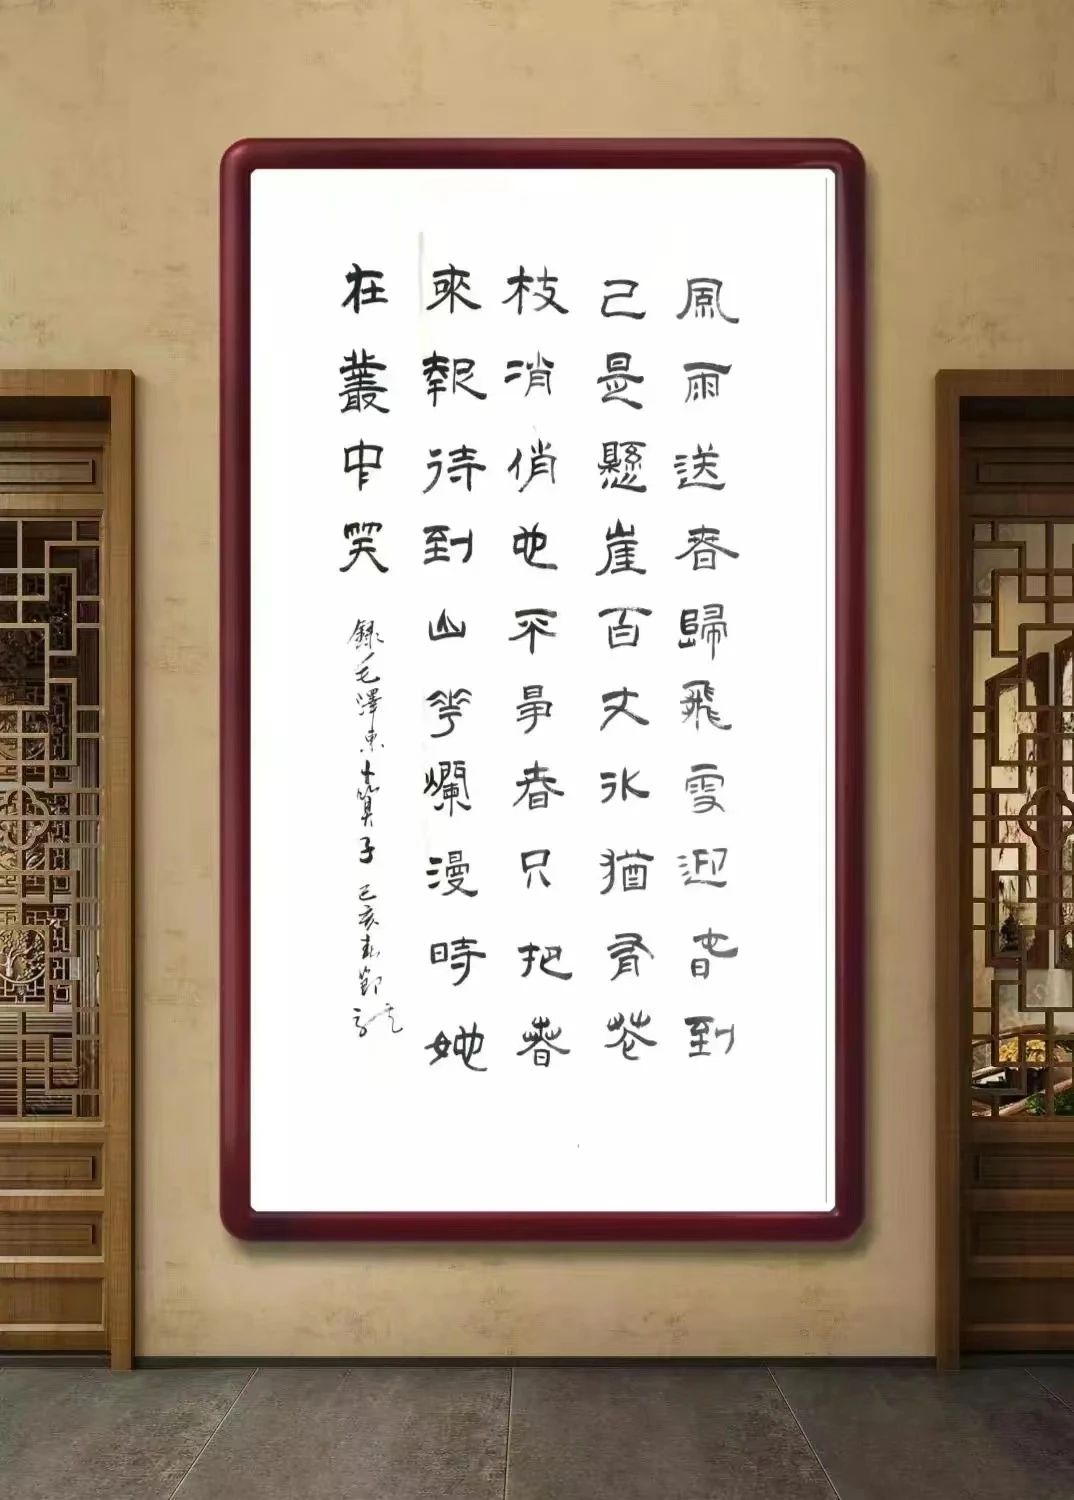 風雨送春歸飛雪迎春到
己是懸崖百丈冰猶有花
枝消俏也不爭春只把春
來報待到山花爛漫時她
在叢中笑
錄毛澤東卜算子 己亥春節